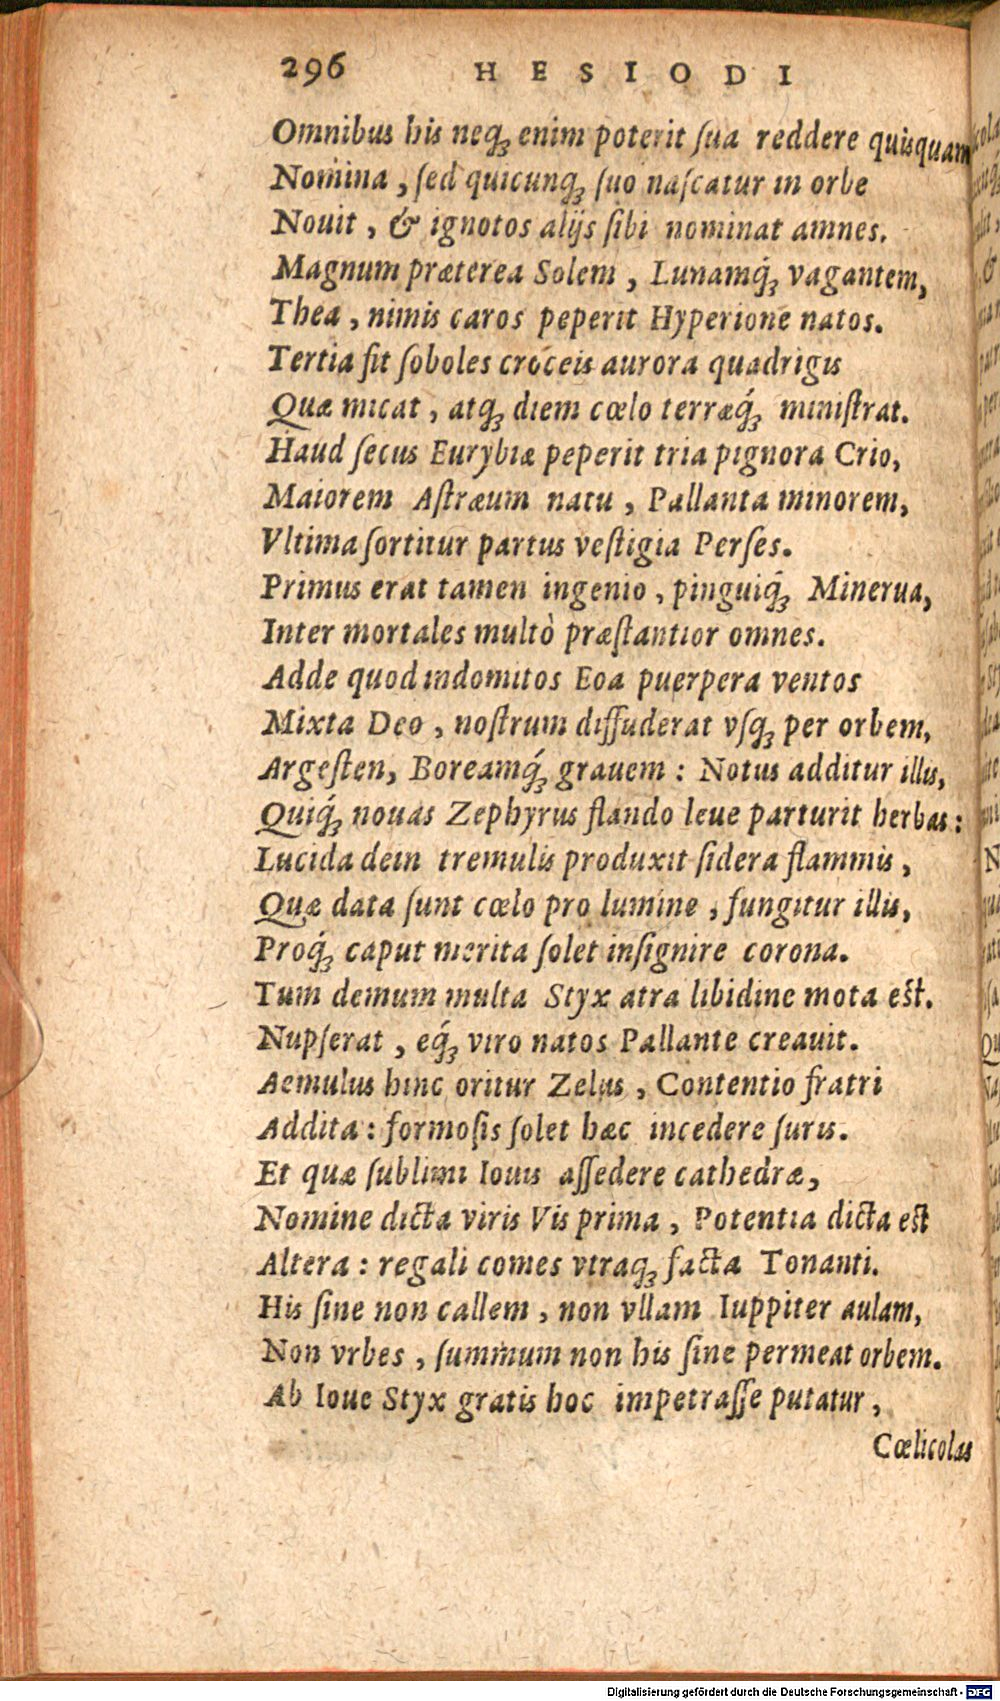 296 HESIODI
Omnibus his neqꝫ enim poterit ſua reddere quisquam
Nomina, ſed quicunqꝫ ſuo naſcatur in orbe
Nouit, & ignotos alijs ſibi nominat amnes.
Magnum præterea Solem, Lunamq́ꝫ vagantem,
Thea, nimis caros peperit Hyperione natos.
Tertia fit ſoboles croceis aurora quadrigis
Quæ micat, atqꝫ diem cœlo terræq́ꝫ miniſtrat.
Haud ſecus Eurybiæ peperit tria pignora Crio,
Maiorem Aſtræum natu, Pallanta minorem,
Vltima ſortitur partus veſtigia Perſes.
Primus erat tamen ingenio, pinguiq́ꝫ Minerua,
Inter mortales multò præſtantior omnes.
Adde quod indomitos Eoa puerpera ventos
Mixta Deo, noſtrum diffuderat vſqꝫ per orbem,
Argeſten, Boreamq́ꝫ grauem: Notus additur illis,
Quiq́ꝫ nouas Zephyrus flando leue parturit herbas:
Lucida dein tremulis produxit ſidera flammis,
Quæ data ſunt cœlo pro lumine, fungitur illis,
Proq́ꝫ caput merita ſolet inſignire corona.
Tum demum multa Styx atra libidine mota eſt.
Nupſerat, eq́ꝫ viro natos Pallante creauit.
Aemulus hinc oritur Zelus, Contentio fratri
Addita: formoſis ſolet hæc incedere ſuris.
Et quæ ſublimi Iouis aſſedere cathedræ,
Nomine dicta viris Vis prima, Potentia dicta eſt
Altera: regali comes vtraqꝫ facta Tonanti.
His ſine non callem, non vllam Iuppiter aulam,
Non vrbes, ſummum non his ſine permeat orbem.
Ab Ioue Styx gratis hoc impetraſſe putatur,
Cœlicolas
Digitalisierung gefördert durch die Deutsche Forschungsgemeinschaft - DFG